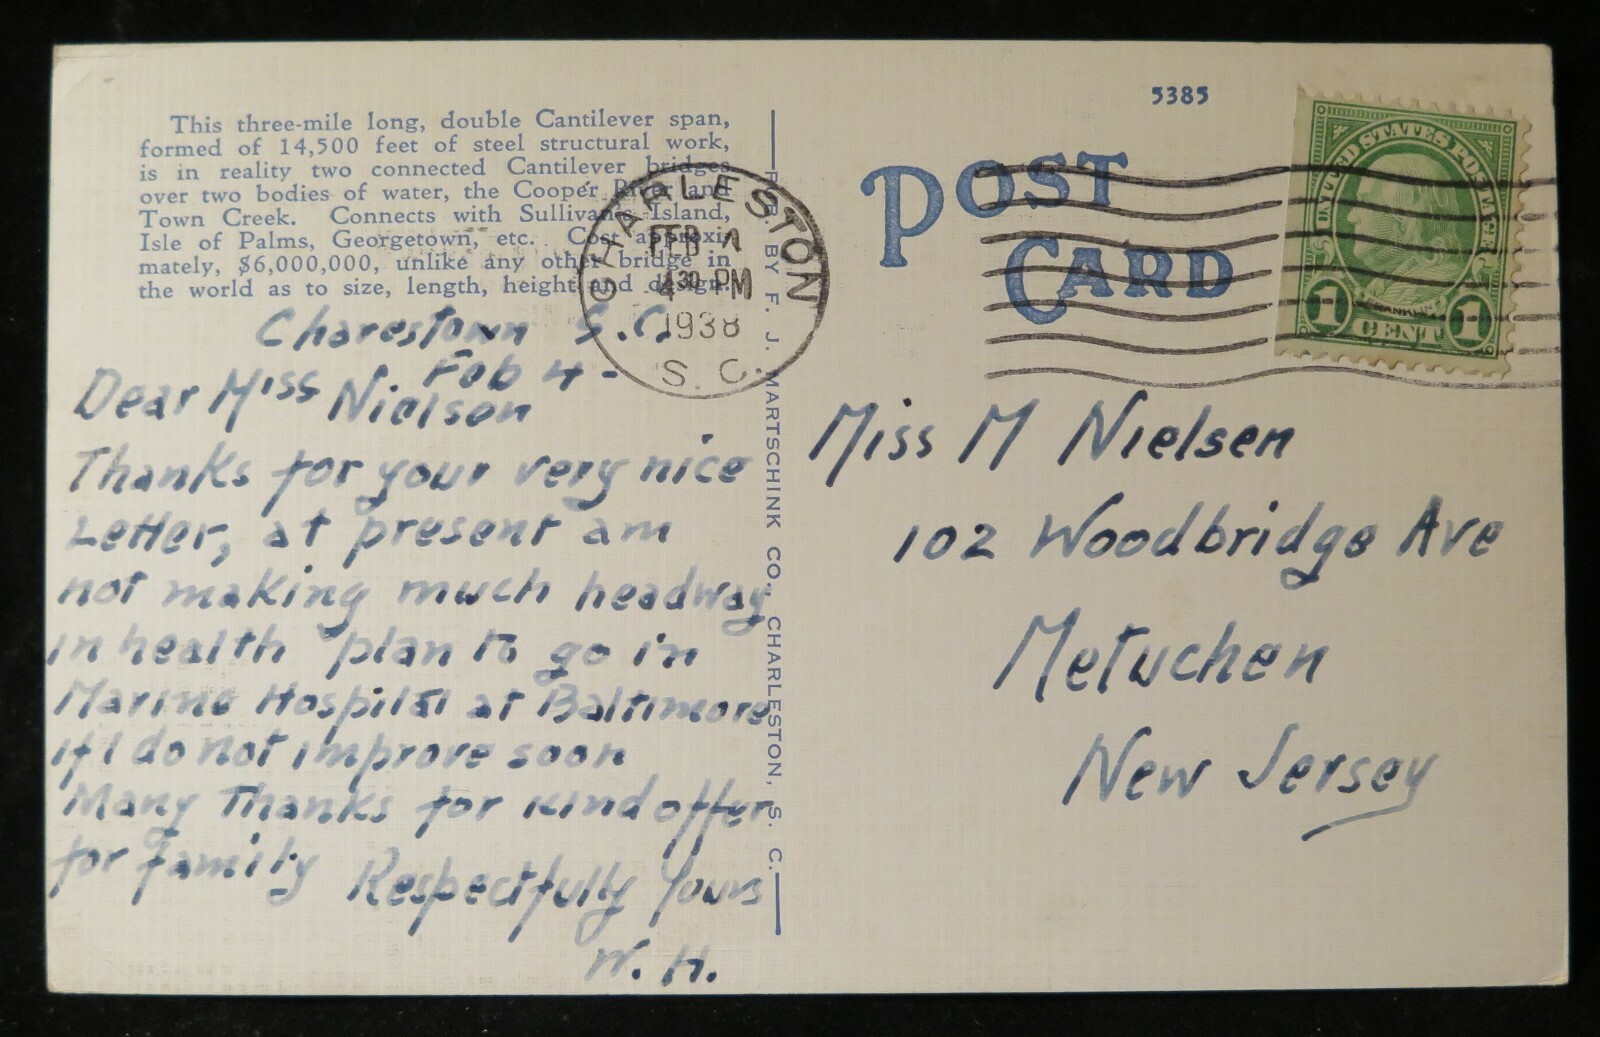 5385
This three-mile long, double Cantilever span,
formed of 14,500 feet of steel structural work,
is in reality two connected Cantilever bridges
over two bodies of water, the Cooper River and
Town Creek. Connects with Sullivan's Island,
Isle of Palms, Georgetown, etc. Cost approxi-
mately, $6,000,000, unlike any other bridge in
the world as to size, length, height and design.
CHARLESTON
FEB
4 30 PM
1938
S. C.
POST
CARD
UNITED STATES POSTAGE
FRANKLIN
1 CENT 1
BY F. J. MARTSCHINK CO., CHARLESTON, S. C.
Charestown S.C.
Feb 4-
Dear Miss Nielsen
Thanks for your very nice
Letter, at present am
not making much headway
in health plan to go in
Marine Hospital at Baltimore
if I do not improve soon
Many Thanks for kind offer
for family Respectfully Yours
W. H.
Miss M Nielsen
102 Woodbridge Ave
Metuchen
New Jersey